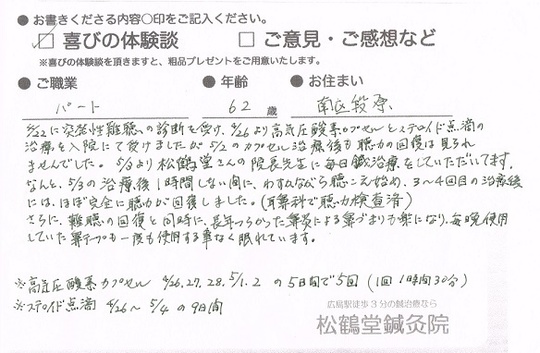 ● お書きくださる内容○印をご記入ください。
☑ 喜びの体験談 □ ご意見・ご感想など
※喜びの体験談を頂きますと、粗品プレゼントをご用意いたします。
● ご職業 ● 年齢 ● お住まい
パート 62 歳 南区段原
4/22に突発性難聴の診断を受け、4/26より高気圧酸素カプセルとステロイド点滴の
治療を入院にて受けましたが5/2のカプセル治療後も聴力の回復は見られ
ませんでした。5/3より松鶴堂さんの院長先生に毎日鍼治療をしていただいてます。
なんと、5/3の治療後1時間しない間に、わずかながら聴こえ始め、3〜4回目の治療後
には、ほぼ完全に聴力が回復しました。(耳鼻科で聴力検査済)
さらに、難聴の回復と同時に、長年つらかった鼻炎による鼻づまりも楽になり、毎晩使用
していた鼻テープも一度も使用する事なく眠れています。
※高気圧酸素カプセル 4/26.27.28.5/1.2 の5日間で5回 (1回1時間30分)
※ステロイド点滴 4/26〜5/4の9日間
広島駅徒歩3分の鍼治療なら
松鶴堂鍼灸院